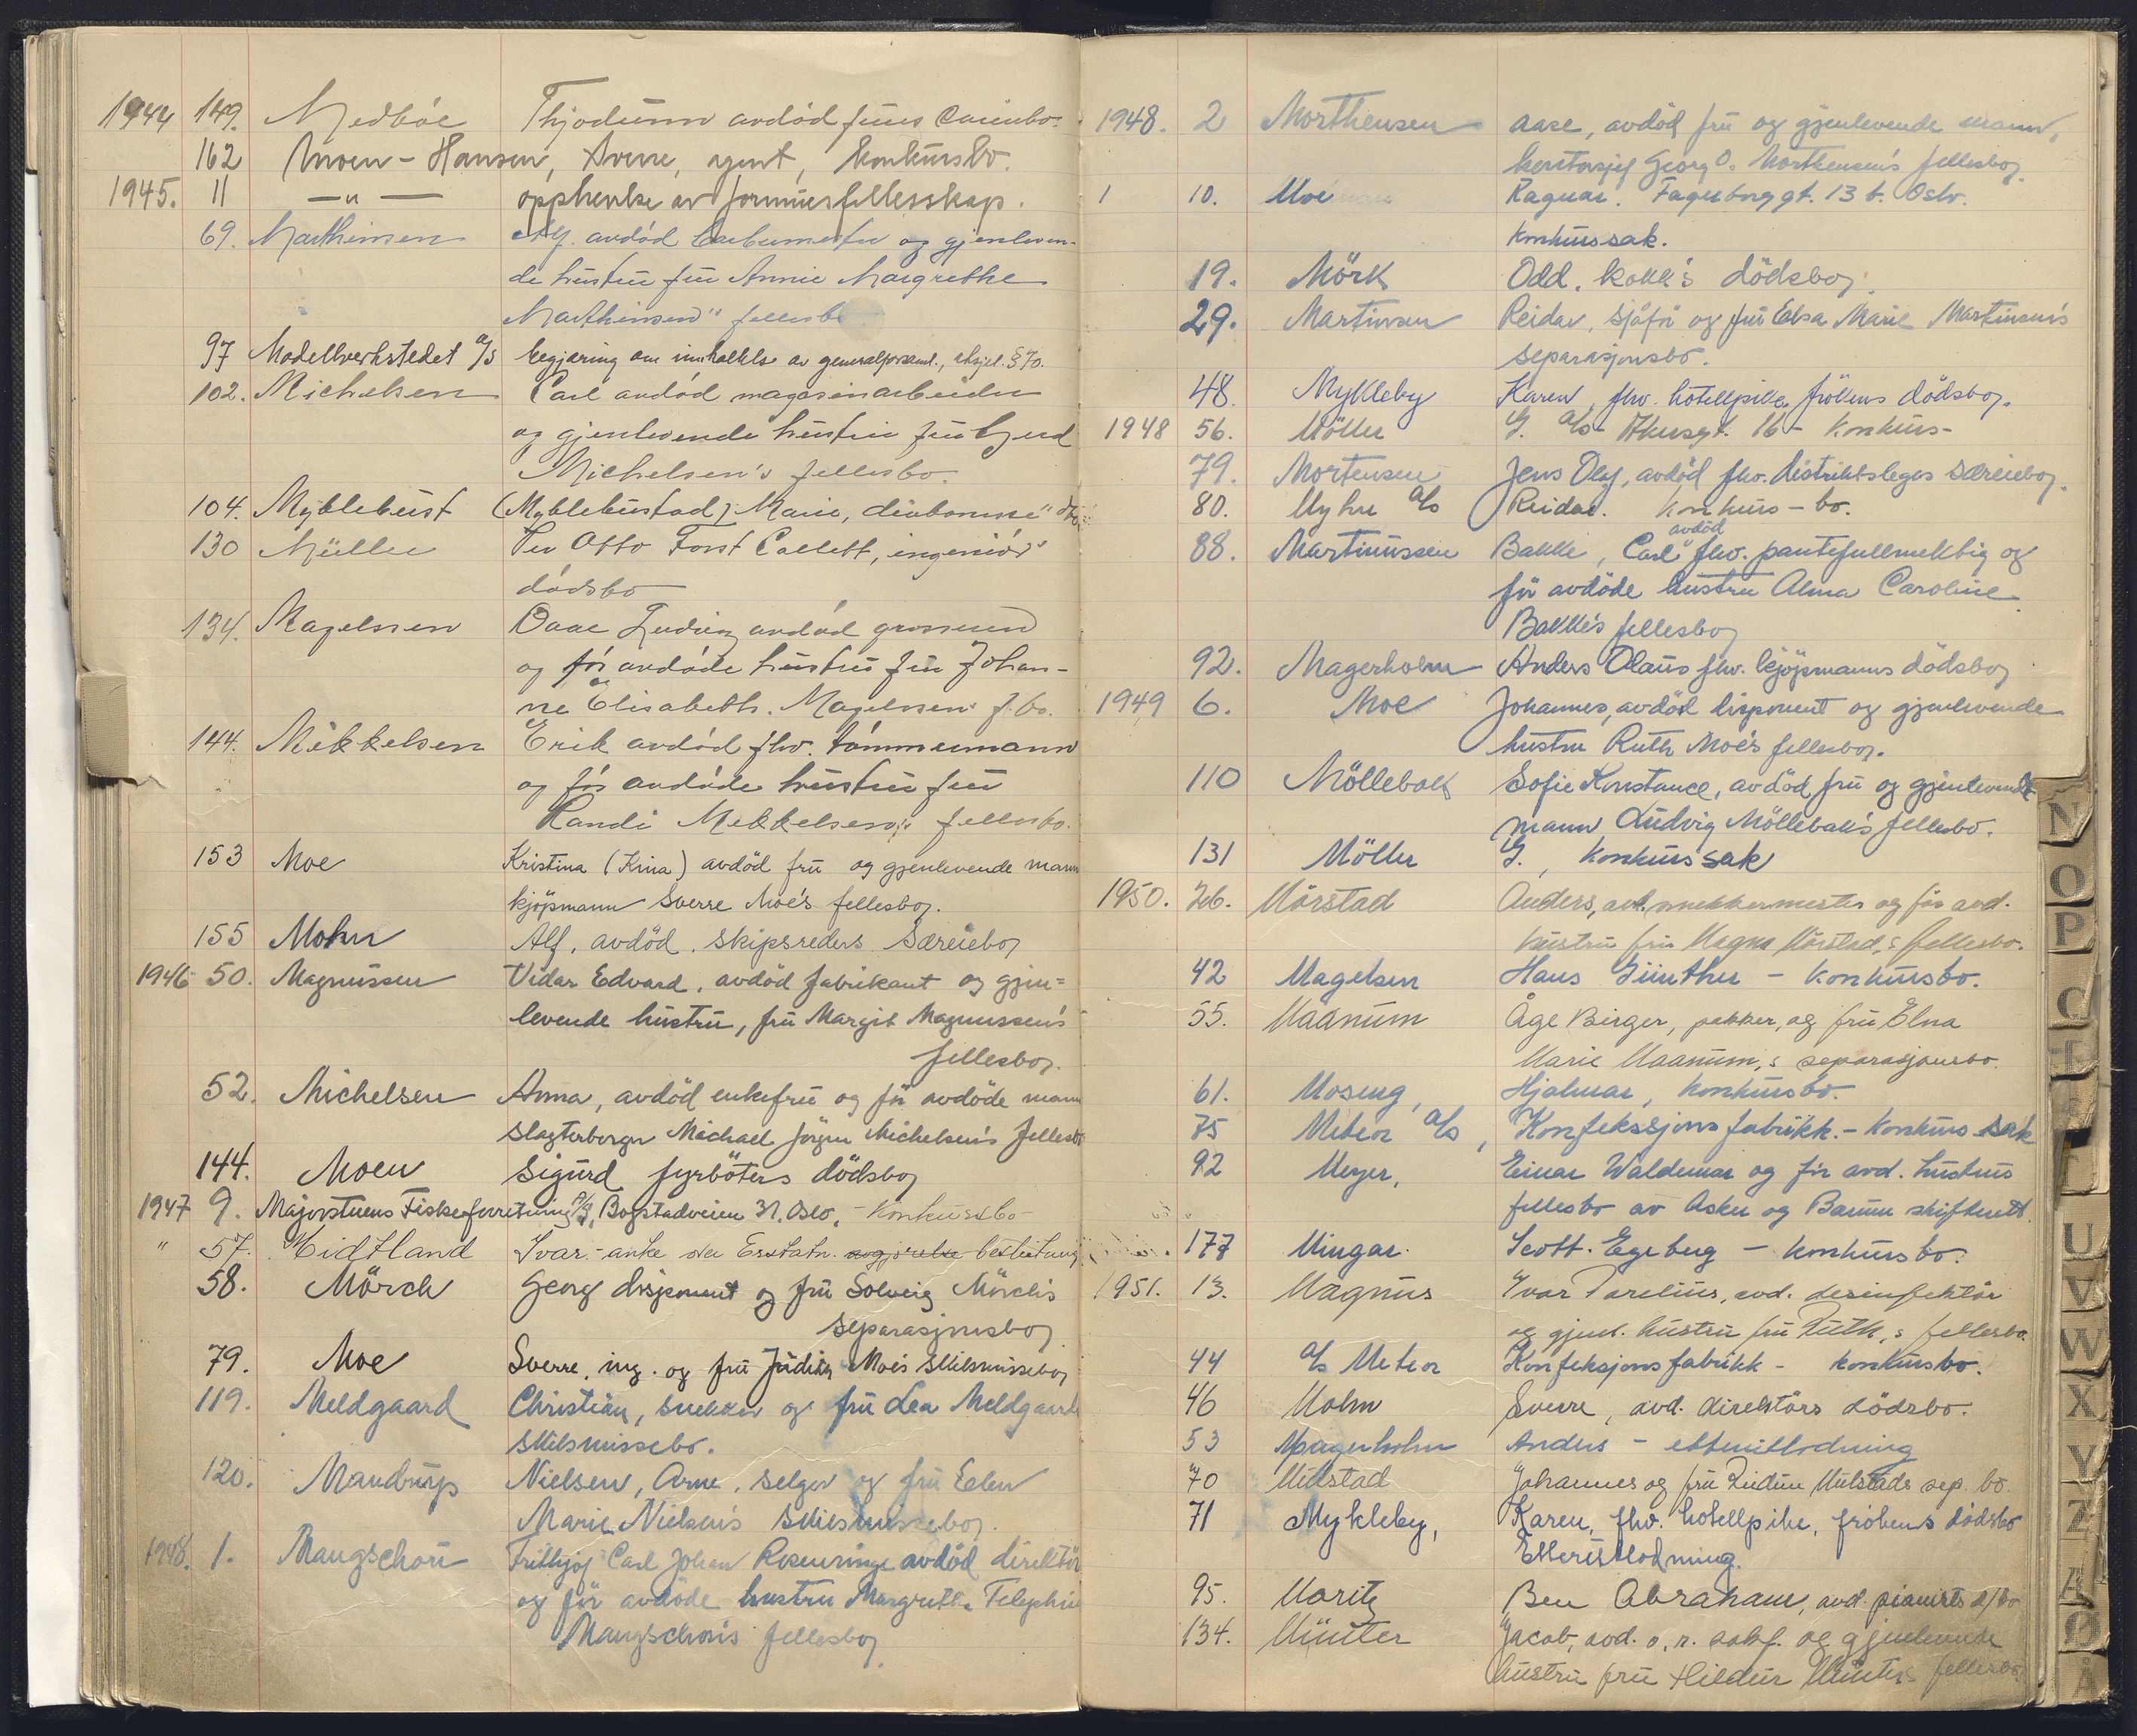 1944 149. Medböe Thjodunn avdöd frues
162 Moen - Hansen, Sverre, agent, konkursbo.
1945. 11 — " — opphevelse av formuesfellesskap.
69. Marthinsen Alf. avdöd og gjenleven-
de hustru fru Annie Margrethe
Marthinsen's fellesbo
97 Modellverkstedet A/S begjæring om innkallelse av generalforsaml., aksjel. § 70.
102. Michelsen Carl avdöd magasinarbeider
og gjenlevende hustru fru
Michelsen's fellesbo.
104. Myklebust (Myklebustad) Marie, diakonisse"
130 Müller Per Otto Forst Collett, ingeniörs
dödsbo
134. Magelssen Daae Ludvig avdöd grosserer
og för avdöde hustru fru Johan-
ne Elisabeth Magelssens f.bo.
144. Mikkelsen Erik avdöd fhv. tömmermann
og för avdöde hustru fru
Randi Mikkelsen's fellesbo.
153 Moe Kristina (Kina) avdöd fru og gjenlevende mann
kjöpmann Sverre Moe's fellesbo.
155 Mohn Alf, avdöd, skipsreders Særeiebo
1946 50. Magnussen Vidar Edvard, avdöd fabrikant og gjen=
levende hustru, fru Margit Magnussen's
fellesbo.
52. Michelsen Anna, avdöd enkefru og för avdöde mann
Slagterborger Michael Jörgen Michelsen's fellesbo
144. Moen Sigurd fyrböters dödsbo
1947 9. Majorstuens Fiskeforretning A/S, Bogstadveien 31, Oslo. - Konkursbo -
" 57. Midtland Ivar - anke over Erstatn. avgjörelse beslutning
58. Mörch Georg disponent og fru Solveig Mörch's
separasjonsbo
79. Moe Sverre, ing. og fru Judith Moe's skilsmissebo
119. Meldgaard Christian, snekker og fru Lea Meldgaards
skilsmissebo.
120. Mandrup Nielsen, Arne, selger og fru Ellen
Marie Nielsen's skilsmissebo.
1948. 1. Maugschou Frithjof Carl Johan Rosenringe avdöd direktör
og för avdöde hustru Margrethe
Maugschou's fellesbo.
1948. 2 Morthensen Aase, avdöd fru og gjenlevende mann,
kontorsjef Georg O. Morthensen's fellesbo.
1 10. Moe Ragnar. Fagerborggt. 13 b. Oslo.
Konkurssak.
19. Mörk Odd, kokk's dödsbo.
29. Martinsen Reidar, sjåför og fru Elsa Marie Martinsen's
separasjonsbo.
48. Mykleby Karen, fhv. hotellpike, frökens dödsbo.
1948 56. Möller G. A/S - Akersgt. 16 - Konkurs -
79. Mortensen Jens Olaf, avdöd fhv. distriktsleges Særeiebo.
80. Myhre A/S Reidar. Konkurs - bo.
avdöd
88. Martinussen Bakke, Carl fhv. pantefullmektig og
för avdöde hustru Alma Caroline
Bakke's fellesbo
92. Magerholm Anders Olaus fhv. kjöpmanns dödsbo
1949 6. Moe Johannes, avdöd disponent og gjenlevende
hustru Ruth Moe's fellesbo.
110 Möllebakk Sofie Konstance, avdöd fru og gjenlevende
mann Ludvig Möllebak's fellesbo.
131 Möller G., Konkurssak
1950. 26. Mörstad Anders, avd. snekkermester og för avd.
hustru fru Magna Mörstad,s fellesbo.
42 Magelsen Hans Günther - Konkursbo.
55. Maanum Åge Birger, pakker, og fru Elna
Marie Maanum,s separasjonsbo.
61. Moseng, Hjalmar, konkursbo.
75 Meteor A/S, Konfeksjonsfabrikk. - Konkurs sak
92 Meyer, Einar Waldemar og för avd. hustrus
fellesbo av Asker og Bærum skifterett.
177 Mingar Scott. Egeberg - konkursbo.
1951. 13. Magnus Ivar Parelius, avd. desinfektör
og gjenl. hustru fru Ruth,s fellesbo.
44 A/S Meteor Konfeksjonsfabrikk - konkursbo.
46 Mohn Sverre, avd. direktörs dödsbo.
53 Magerholm Anders - etterutlodning
70 Mulstad Johannes og fru Mulstads sep. bo.
71 Mykleby, Karen, fhv. hotellpike, frökens dödsbo
Etterutlodning.
95. Moritz Ben Abraham, avd. pianists d/bo
134. Münter Jacob, avd. o.r. sakf. og gjenlevende
hustru fru Hildur Münters fellesbo.
N
O
P
U
V
W
X
Y
Z
Æ
Ø
Å